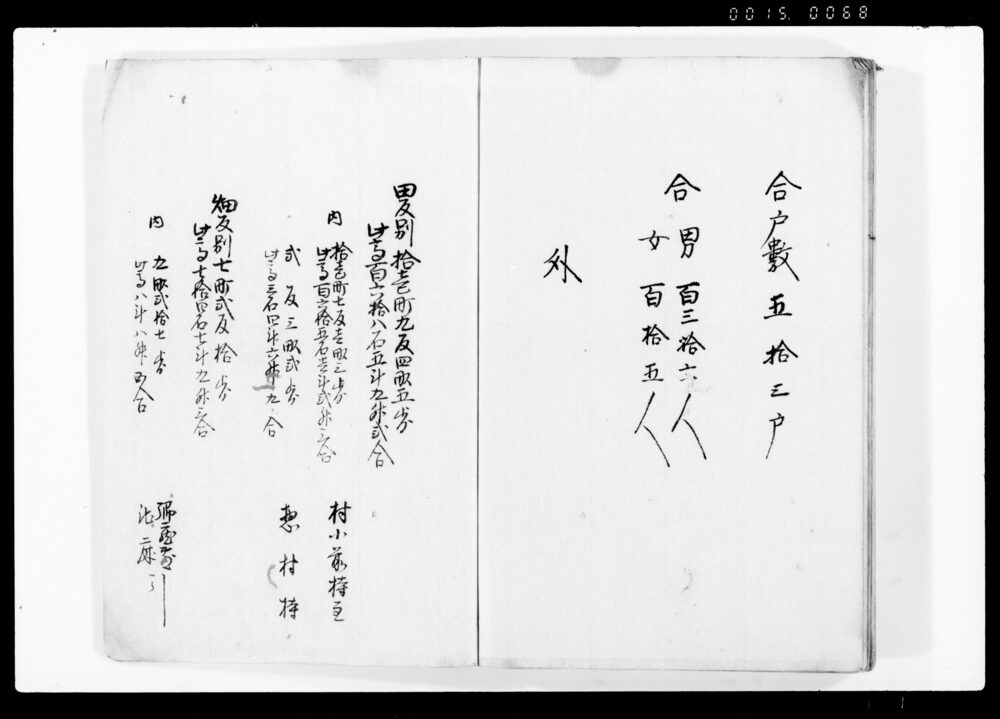 0015.0068
合戸數五拾三戸
合男百三拾六人
女百拾五人
外
田反別拾壱町九反四畝五歩
此高百六拾八石五斗九升弐合
内拾壱町七反壱畝三歩
此高百六拾五石壱斗弐升三合
村小前持
弐反三畝弐歩
此高三石四斗六升九合
惣村持
畑反別七町弐反拾歩
此高七拾四石七斗九升三合
内九畝弐拾七歩
此高八斗八升五合